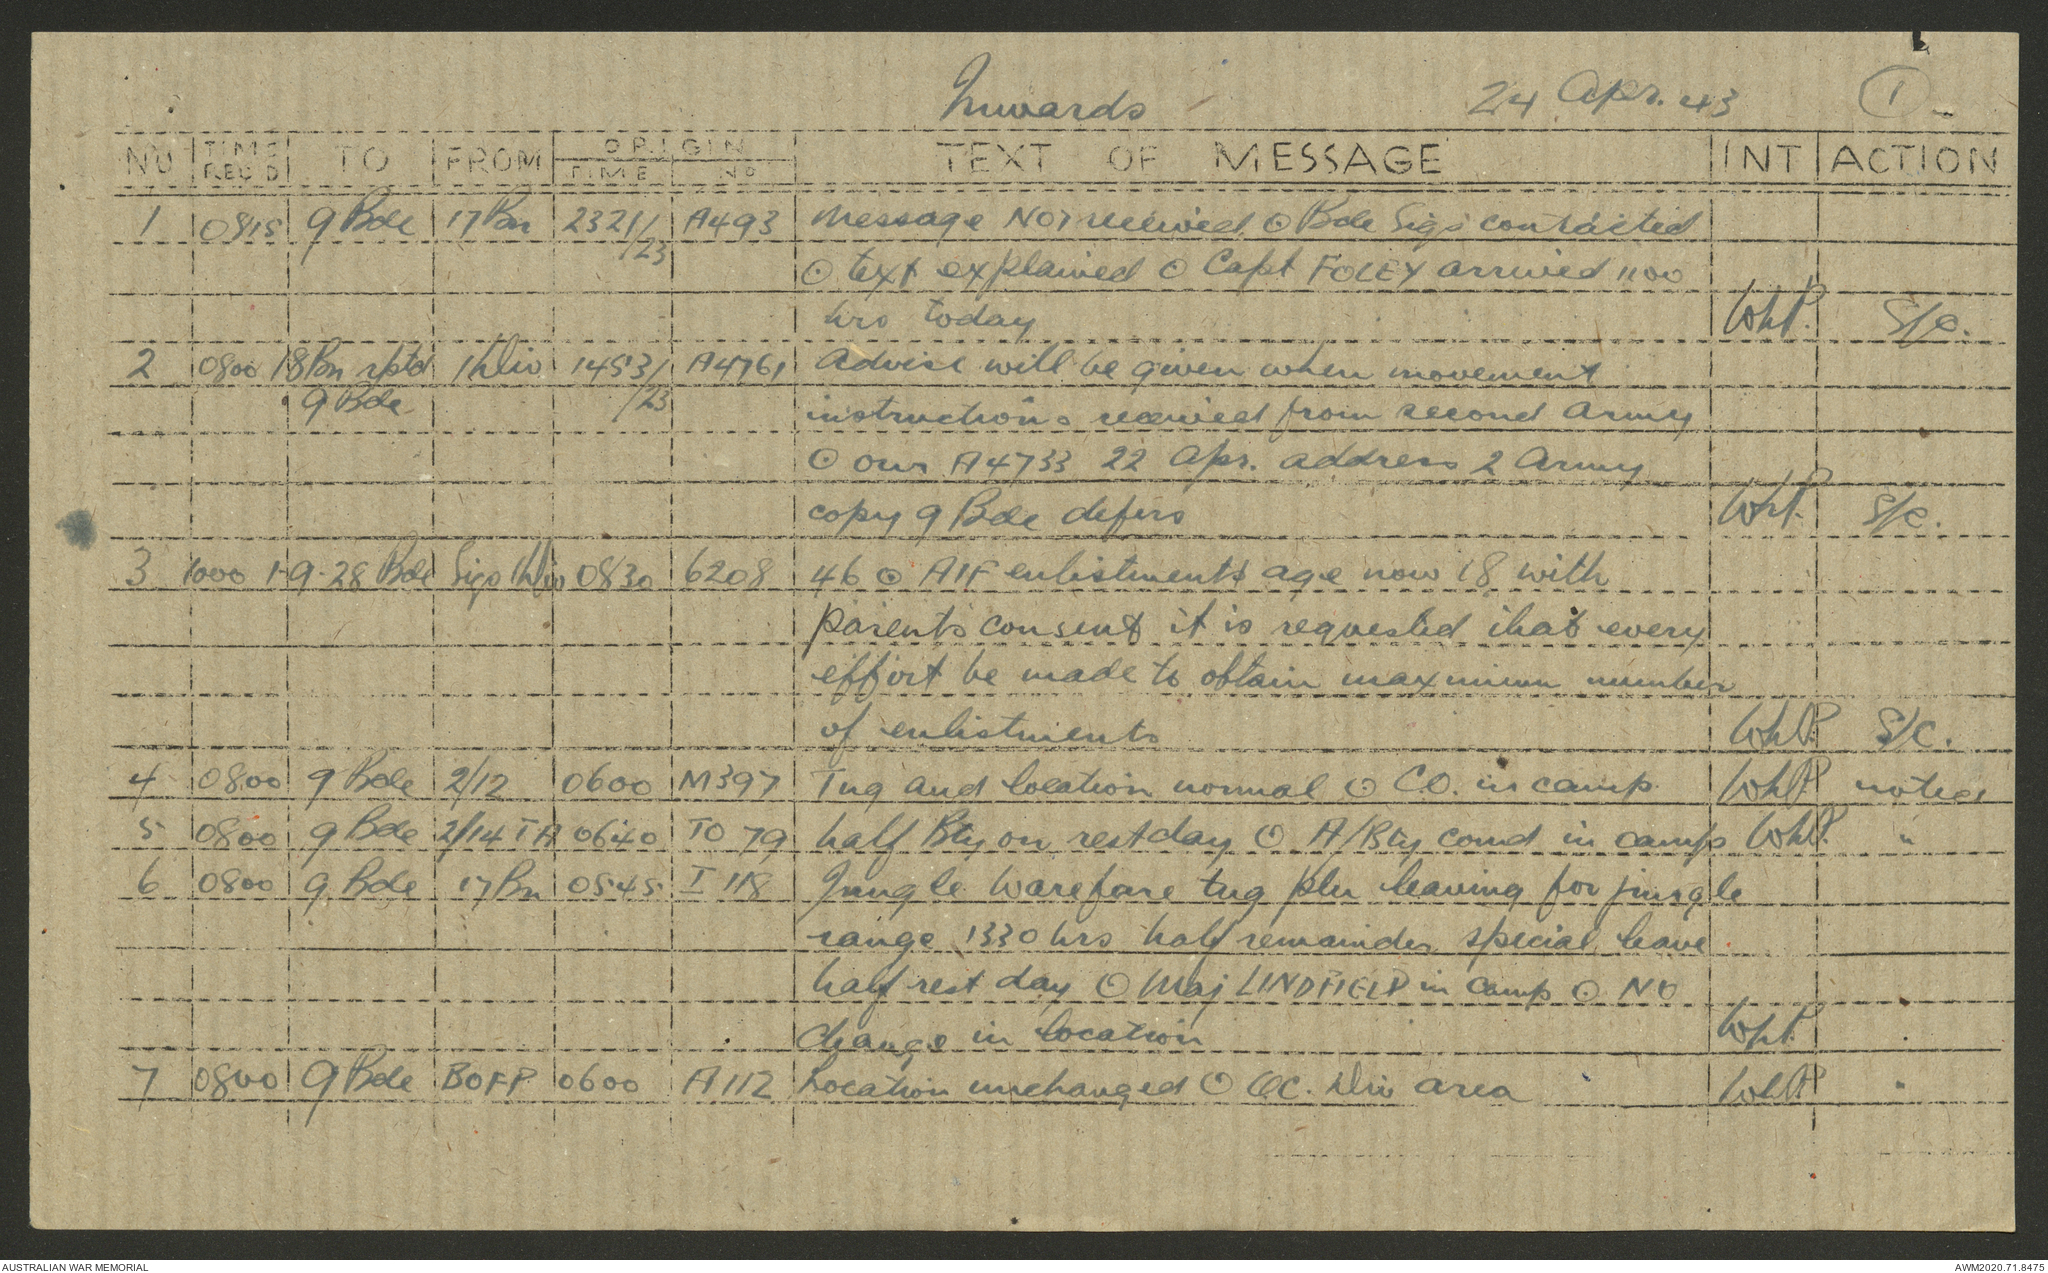 Inwards 24 Apr. 43 1
NO TIME REC'D TO FROM ORIGIN TIME NO TEXT OF MESSAGE INT ACTION
1 0815 9 Bde 17 Bn 2321/ A493 message NOT received ⊙ Bde Sigs contacted
/23 ⊙ text explained ⊙ Capt FOLEY arrived 1100
hrs today WhP. S/C.
2 0800 18 Bn rptd 1 Div 1453/ A4761 Advise will be given when movement
9 Bde /23 instructions received from second Army
⊙ our A4733 22 Apr. address 2 Army
copy 9 Bde defers WhP. S/C.
3 1000 1-9-28 Bde Sigs 1 Div 0830 6208 46 ⊙ AIF enlistments age now 18 with
parents consent it is requested that every
effort be made to obtain maximum number
of enlistments WhP. S/C.
4 0800 9 Bde 2/12 0600 M397 Tng and location normal ⊙ CO. in camp WhP noted
5 0800 9 Bde 2/14 TA 0640 TO 79 half Bty on rest day ⊙ A/Bty comd in camp WhP. "
6 0800 9 Bde 17 Bn 0545 I 118 Jungle Warefare tng pln leaving for jungle
range 1330 hrs half remainder special leave
half rest day ⊙ Maj LINDFIELD in camp ⊙ NO
change in location WhP. "
7 0800 9 Bde BOFP 0600 A112 Location unchanged ⊙ OC. Div area WhP "
AUSTRALIAN WAR MEMORIAL AWM2020.71.8475